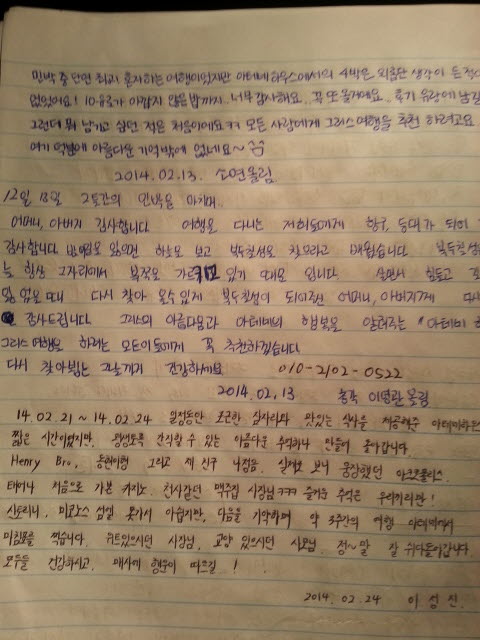 민박 중 단연 최고 혼자하는 여행이었지만 아테네하우스에서의 4박은 외롭단 생각이 든 적이
없었어요! 10유로가 아깝지 않은 밥까지.. 너무 감사해요. 꼭 또 올거에요. 후기 유랑에 남길
그런데 뭐 남기고 싶던 적은 처음이에요ㅋㅋ 모든 사람에게 그리스여행을 추천 하려고요
여기 덕분에 아름다운 기억밖에 없네요~
2014. 02. 13. 소연올림
12일 13일 2틀간의 민박을 마치며.
어머니, 아버지 감사합니다. 여행을 다니는 저희들에게 항구, 등대가 되어
감사합니다. 방향을 잃으면 하늘을 보고 북두칠성을 찾으라고 배웠습니다. 북두칠성
는 항상 그자리에서 북쪽을 가르키고 있기 때문 입니다. 살면서 힘들고
잃었을때 다시 찾아 올수있게 북두칠성이 되어주신 어머니, 아버지께 다시
감사드립니다. 그리스의 아름다움과 아테네의 행복을 알려주는 "아테네
그리스여행을 하려는 모든이들에게 꼭 추천하겠습니다.
다시 찾아뵙는 그날까지 건강하세요. 010-2102-0522
2014. 02. 13 이영관 올림
14. 02. 21 ~ 14. 02. 24 일정동안 포근한 잠자리와 맛있는 식사를 제공해준 아테네하우스
짧은 시간이었지만, 평생토록 간직할 수 있는 아름다운 추억하나 만들어 돌아갑니다.
Henry Bro, 그리고 제 친구 실제로 보니 웅장했던 아크로폴리스.
태어나 처음으로 가본 카지노. 천사같던 맥주집 사장님ㅋㅋㅋ 즐거운 추억은 우리끼리만!
산토리니, 미코노스 섬일 못가서 아쉽지만, 다음을 기약하며 약 3주간의 여행 아테네에서
마침표를 찍습니다. 위트있으시던 사장님, 교양 있으시던 사모님. 정~말 잘 쉬다돌아갑니다.
모두들 건강하시고, 매사에 행운이 따르길!
2014. 02. 24 이성진